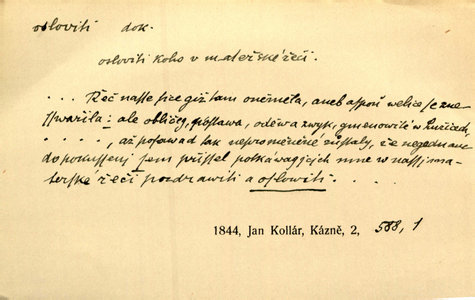 osloviti dok.
osloviti koho v mateřské řeči.
. . . . Řeč nasse sice giž tam oněměla, aneb aspoň welice se zne-
sswařila : ale obličeg, postawa, oděw a zwyk, gmenowitě w Kurších,
. . . . . , až posawad tak neproměněné zůstaly, že negednauc
do pokussenj sem přissel potkáwagjcjch mne w nassj ma-
teřské řeči pozdrawiti a oslowiti . . . .
1844, Jan Kollár, Kázně, 2, 588, 1